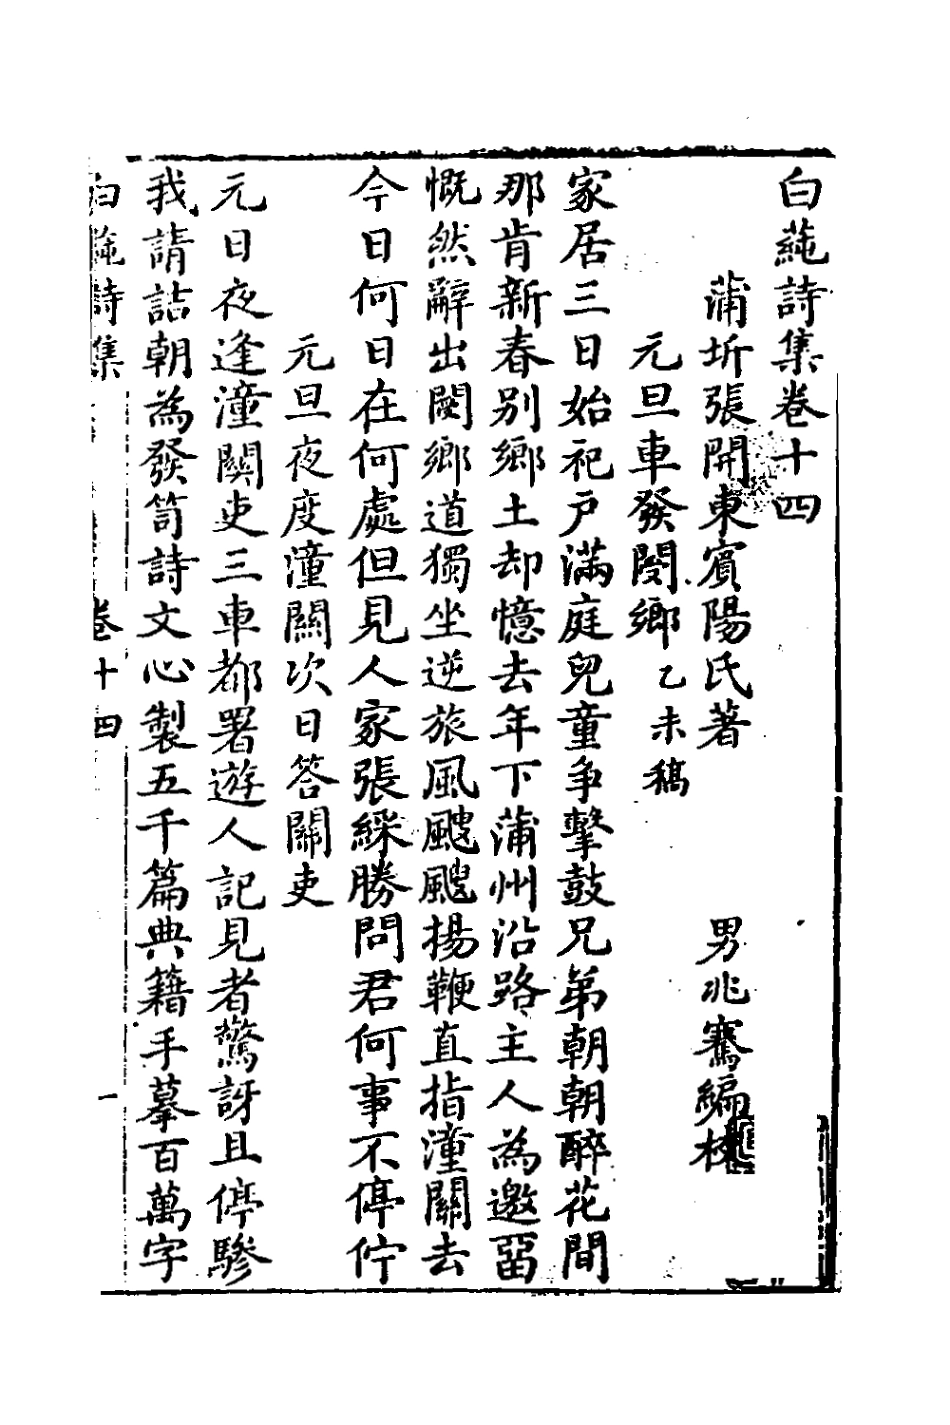 白蒓詩集卷十四
蒲圻張開東賓陽氏著 男兆騫編校
元旦車發閿鄉 乙未稿
家居三日始祀戶滿庭兒童争擊鼓兄弟朝朝醉花間
那肯新春别鄉土却憶去年下蒲州沿路主人為邀畱
慨然辭出閿鄉道獨坐逆旅風颼颼揚鞭直指潼關去
今日何日在何處但見人家張綵勝問君何事不停佇
元旦夜度潼關次日答關吏
元日夜逢潼關吏三車都署遊人記見者驚訝且停驂
我請詰朝為發笥詩文心製五千篇典籍手摹百萬字
白蒓詩集 卷十四 一